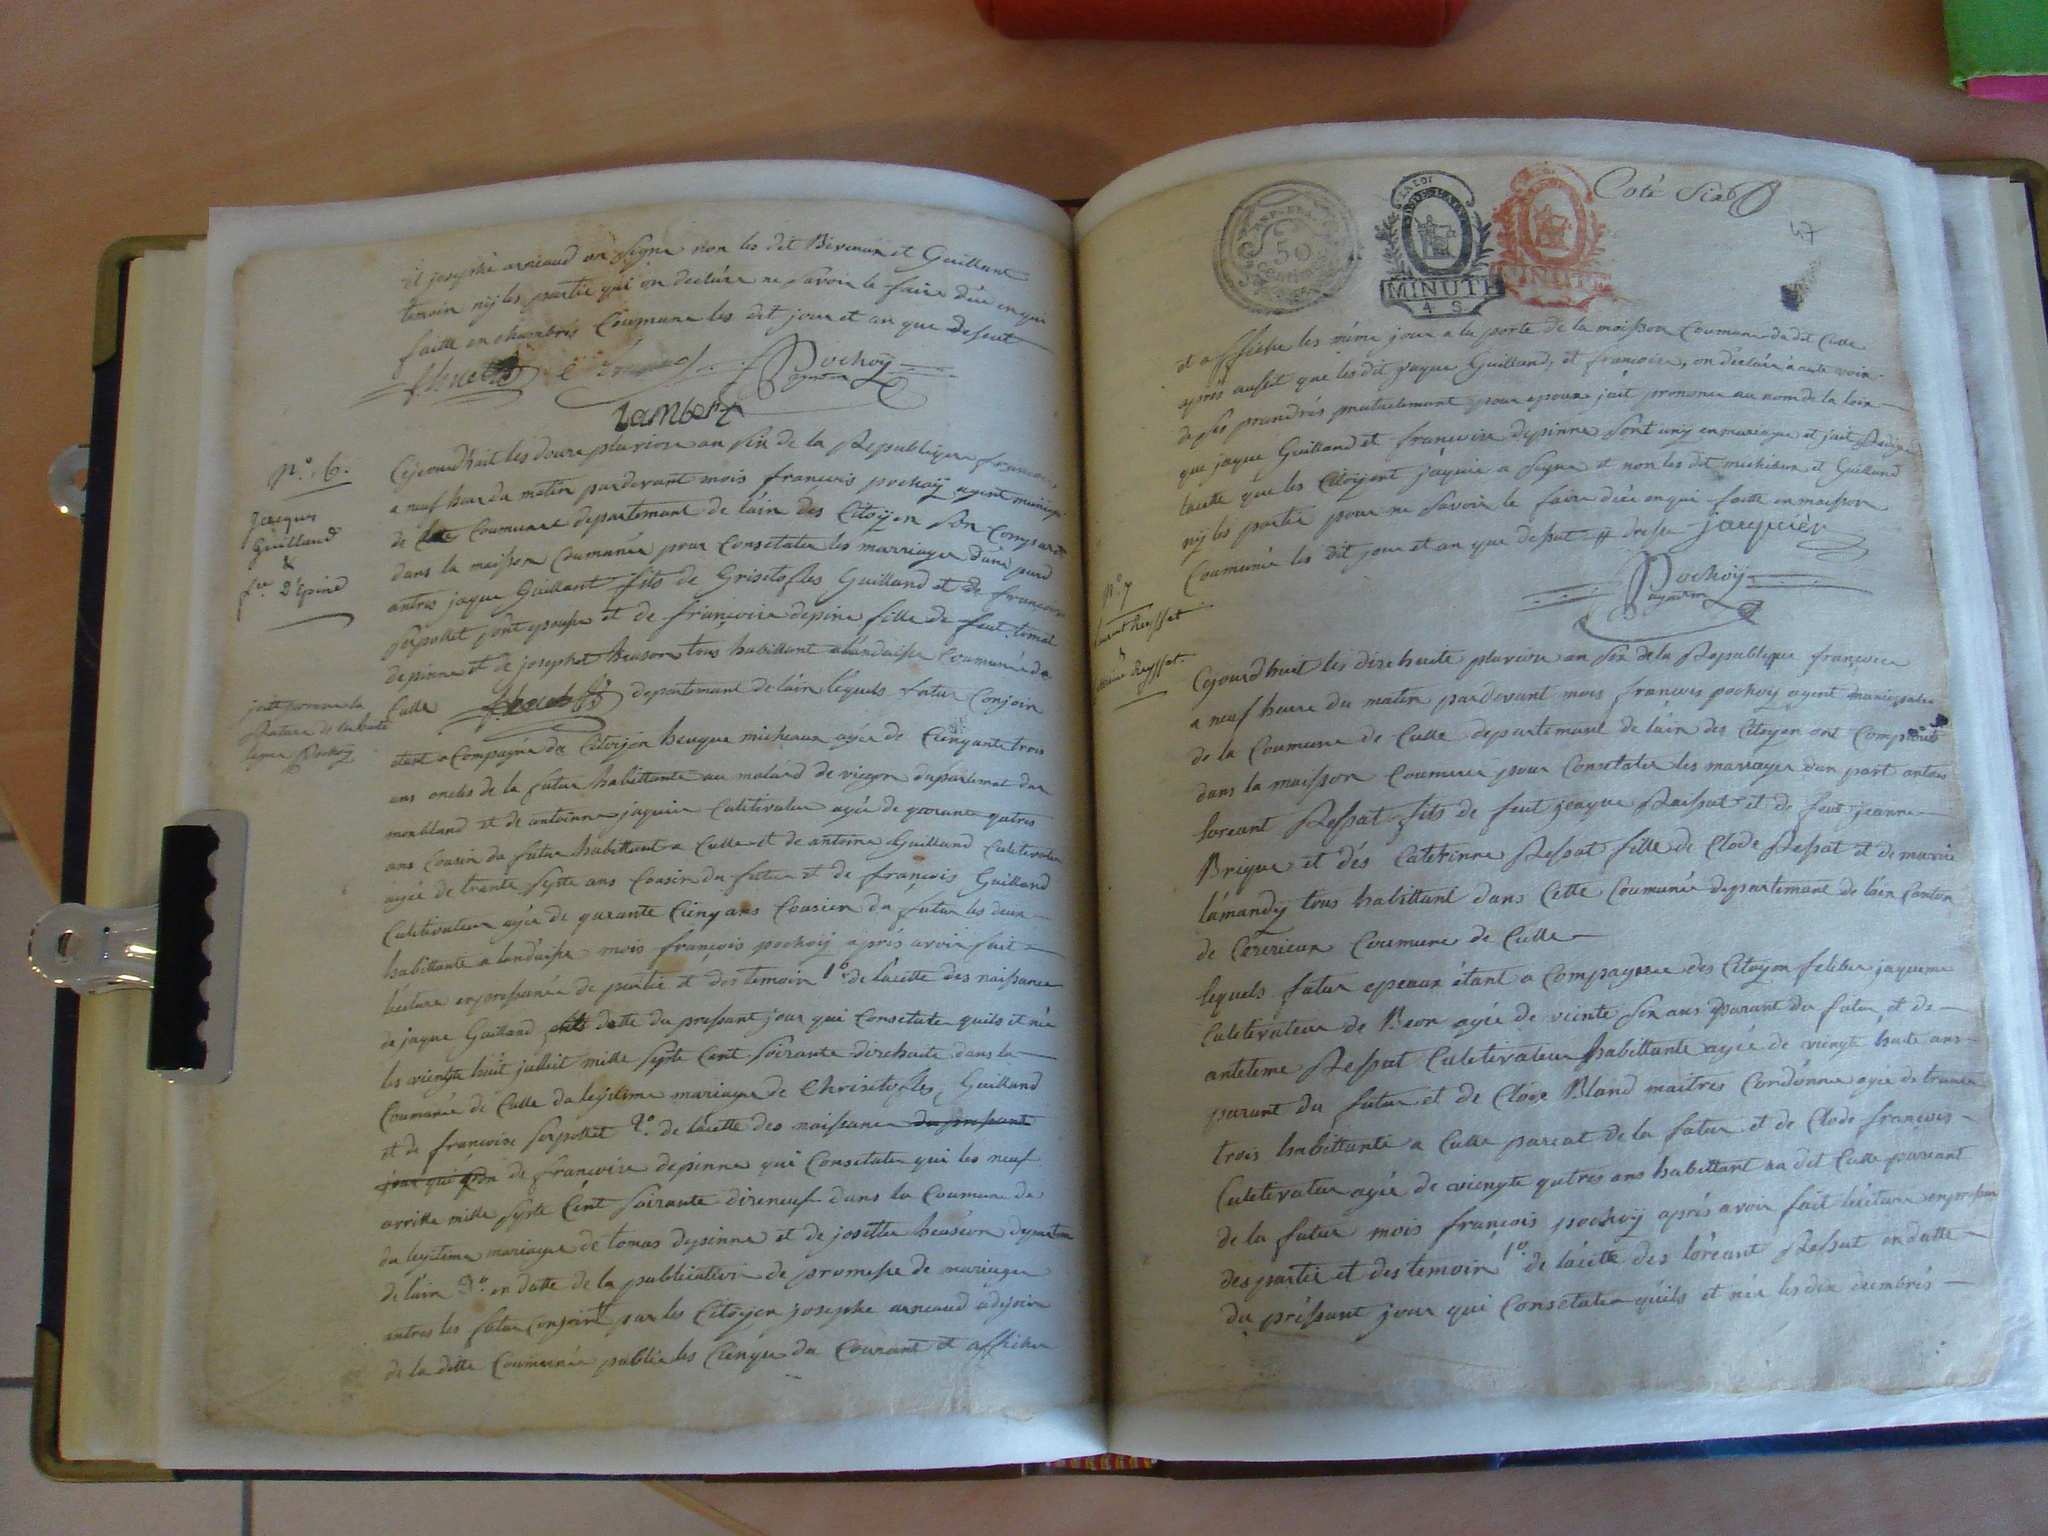 et josephe arneaud on signe non les dit Biveaux et Guilland
temoin nij les partie qui on declére ne savoir le faire dée en qui
faitte en chambrés Coumune les dit jour et an que desut
Pochoÿ
agent
Lambert
N.o 6.
Jacques
Guilland
&
f.se D'Epine
Cejourdhuit les douze pluviose an six de la Republique francoise,
a neuf heur du matin pardevant mois francois pochoÿ agent municipal
de Coumune departemant de lain des Citoÿen son Comparut
dans la maison Coumunée pour Consetater les marriages dune pard
antres jaque Guillant fils de Grisetofles Guilland et de francoise
serpollet son epouse et de francoise depine fille de feut tomat
depinne et de josephet heuson tous habittant a landaise Coumunée de
Culle departemant de lain lequels futur Conjoin
etant a Compagné de Citoÿen heugue micheaux agée de Cinquante trois
ans oncles de la futur habittante au molard de vieon departemat du
monbland et de antoinne jaquier Cultivateur agée de quarante quatres
ans Cousin du futur habittant a Culle et de antoine Guilland Culetivateur
agée de trente septe ans Cousin du futur et de francois Guilland
Culetivateur agée de quarante Cinq ans Cousien du futur les deux
habittante a landaise mois francois pochoÿ aprés avoir fait
lecture en pressance de partie et des temoin 1o. de lacette des naissance
de jaque Guilland en datte du pressant jour qui Consetater quils et née
les viengte huit julliet mille septe Cent soixante dixehuite dans la
Coumunée de Culle du legitime mariage de Christofles Guilland
et de francoise serpollet 2o. de lacette des naissance du pressante
jour qui de francoise depinne qui Consetater qui les neuf
avrille mille septe Cent soixante dixneuf dans la Coumune de
du legitime mariage de tomas depinne et de josette heuseon departem
de lain 3o. en datte de la publication de promesse de mariages
antres les futur conjoint par les Citoÿen josephe arneaud adejoin
de la ditte Coumunée publié les Cinque du Courant et affiche
Coté Six
57
REP. FRA.
50
CENTIMES
LA LOI
MINUTE
4 S
MINUTE
et affiche les méme jour a la porte de la maison Coumune du dit Culle
aprés auseit que les dit jaque Guilland, et francoise, on declére a aute voix
de ses prandrés mutuelemant pour epoux jait prononcé au nom de la loix
que jaque Guilland et francoise depinne sont uny en mariage et jait Redigé
lacette que les Citoÿent jaquier a signe et non les dit micheaux et Guilland
nij les partie pour ne savoir le faire dée en qui faitte en maison
Coumunée les dit jour et an que desut jacquier
Pochoÿ
agent
N.o 7
Laurent Reysset
&
Catherine Reysset.
Cejourdhuit les dixehuite pluviose an six de la Republique francoise
a neuf heure du matin pardevant mois francois pochoÿ agent municipale
de la Coumune de Culle departemant de lain des Citoÿen ont Comparut
dans la maisson Coumune pour Consetater les marriages dun part antres
loreant Ressat fils de feut jaque Raissat et de feut jeanne
Brique et dés Caterinne Ressat fille de Clode Ressat et de marie
lémandy tous habittant dans Cette Coumunée departemant de lain Canton
de Ceizerieux Coumune de Culle
lequels futur epeaux étant a Compagnee des Citoÿen feliber jaqueme
Culetivateur de Beon agée de viente six ans parant du futur et de
anteteme Ressat Culetivateur habittante agée de viengte huite ans
parant du futur et de Clode Bland maitres Cordonnee agée de trante
trois habittante a Culle pareat de la futur et de Clode francois
Culetivateur agée de viengte quatres ans habittant au dit Culle pareant
de la futur mois francois pochoÿ aprés avoir fait lecture en pressance
des partie et des temoin 1o. de lacette des loreant Ressat en datte
du préssant jour qui Consetater quils et née les dix